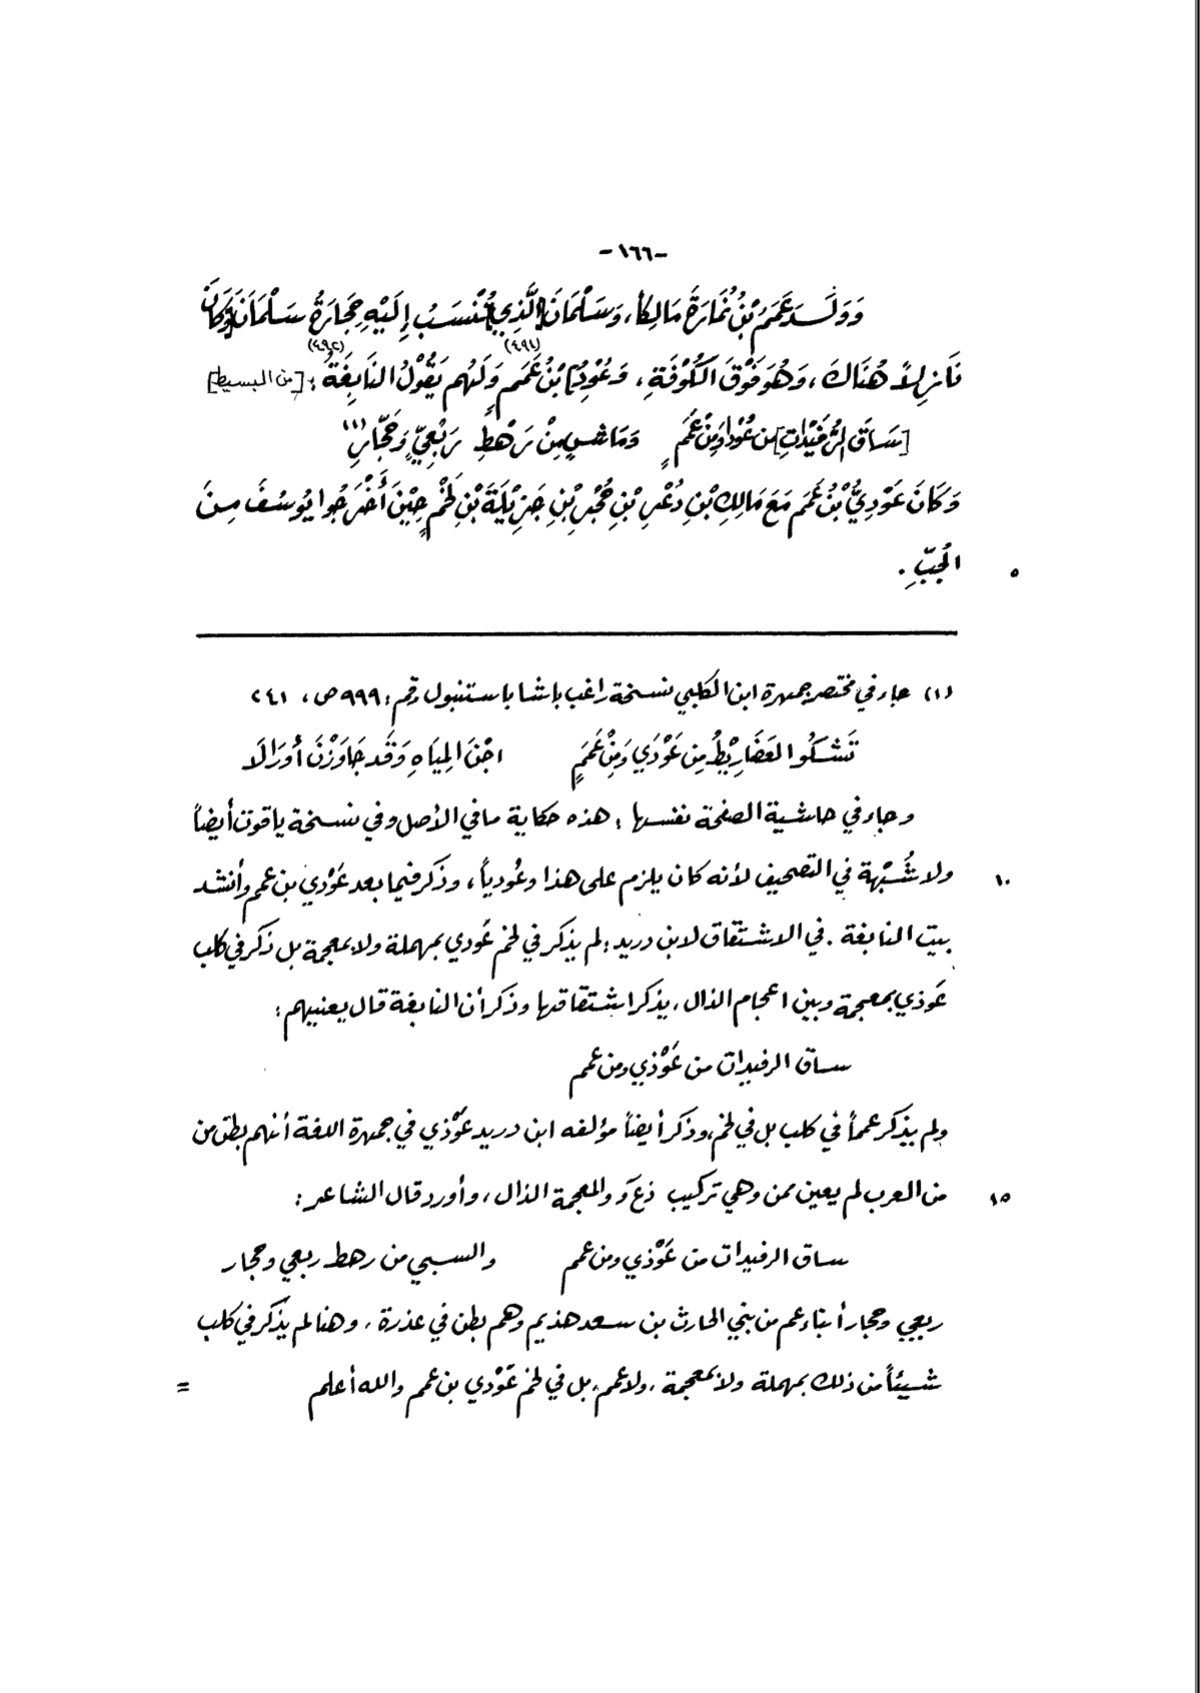 -١٦٦-
وَوَلَدَ عَمَمُ بْنُ نُمَارَةَ مَالِكاً، وَسَلْمَانَ [الَّذِي] تُنْسَبُ إِلَيْهِ حِجَارَةُ سَلْمَانَ [وَكَانَ
نَازِلاً هُنَاكَ، وَهُوَ فَوْقَ الكُوْفَةِ، وَعُوْدِيُّ] بْنُ عَمَمٍ (٤٩١) وَلَهُم يَقُوْلُ النَّابِغَةُ (٤٩٢): [من البسيط]
[سَاقَ الرُّفَيْدَاتِ] من عُوْدَا وَمِنْ عَمَمٍ وَمَاشٍ مِنْ رَهْطِ رِبْعِيٍّ وَحَجَّارِ(١)
وَكَانَ عَوْدِيُّ بْنُ عَمَمٍ مَعَ مَالِكِ بْنِ دُعْرِ بْنِ حُجْرِ بْنِ جَزِيْلَةَ بْنِ لَخْمٍ حِيْنَ أَخْرَجُوا يُوسُفَ مِنَ
الجُبِّ. ٥
(١) جاء في مختصر جمهرة ابن الكلبي نسخة راغب باشا باستنبول رقم: ٩٩٩ ص، ٢٤١
تَشْكُوا العَضَارِيْطُ مِن عَوْدَي وَمِنْ عَمَمٍ اجْنَ المِيَاهِ وَقَد جَاوَزْنَ أُورَالَا
وجاء في حاشية الصفحة نفسها: هذه حكاية ما في الأصل وفي نسخة ياقوت أيضاً
ولا شُبْهة في التصحيف لأنه كان يلزم على هذا وعُودياً، وذكر فيما بعد عَوْدي بن عمم وأنشد ١٠
بيت النابغة. في الاشتقاق لابن دريد: لم يذكر في لخم عَودي بمهملة ولا بمعجمة بل ذكر في كلب
عَوذي بمعجمة وبين اعجام الذال، يذكر اشتقاقها وذكر أن النابغة قال يعنيهم:
ساق الرفيدات من عَوْذي ومن عمم
ولم يذكر عمماً في كلب بل في لخم، وذكر أيضاً مؤلفه ابن دريد عَوْذي في جمهرة اللغة أنهم بطن من
من العرب لم يعين ممن وهي تركيب ذعَوَ والمعجمة الذال، وأورد قال الشاعر: ١٥
ساق الرفيدات من عَوْذي ومن عمم والسبي من رهط ربعي وحجار
ربعي وحجار أبناء عم من بني الحارث بن سعد هذيم وهم بطن في عذرة، وهنا لم يذكر في كلب
شيئاً من ذلك بمهملة ولا بمعجمة، ولا عمم، بل في لخم عَوْدي بن عمم والله أعلم =